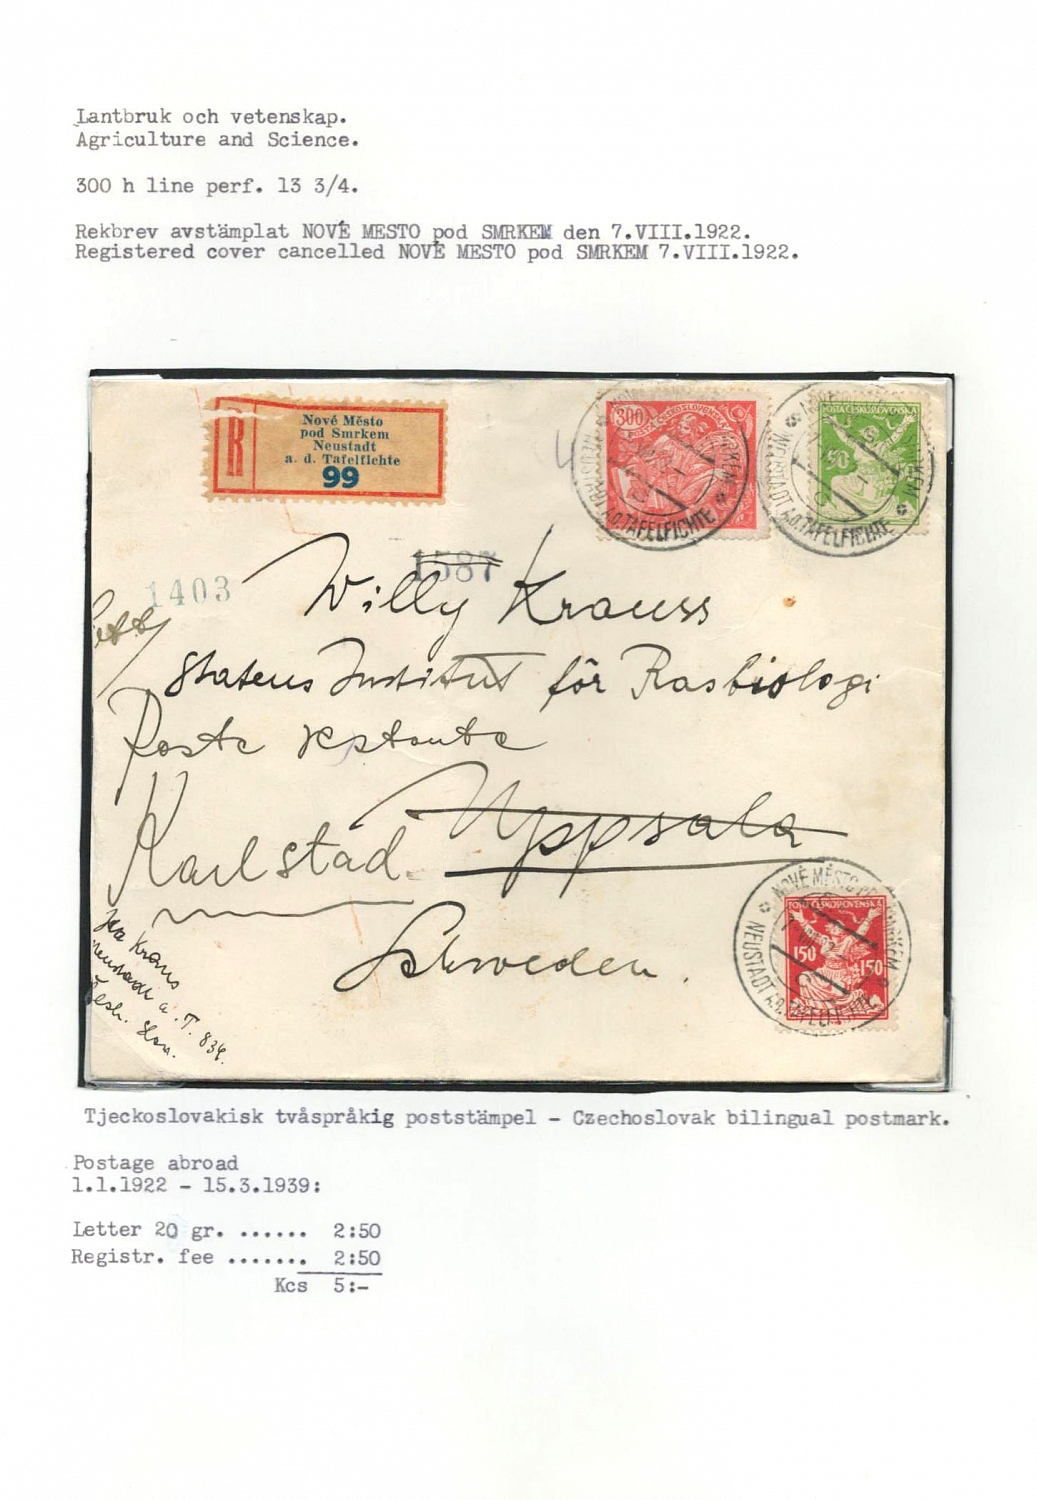 Lantbruk och vetenskap.
Agriculture and Science.
300 h line perf. 13 3/4.
Rekbrev avstämplat NOVÉ MESTO pod SMRKEM den 7.VIII.1922.
Registered cover cancelled NOVÉ MESTO pod SMRKEM 7.VIII.1922.
R
Nové Město
pod Smrkem
Neustadt
a. d. Tafelfichte
99
300
POSTA ČESKOSLOVENSKÁ
NEUSTADT A.D. TAFELFICHTE
POSTA ČESKOSLOVENSKÁ
50
NEUSTADT A.D. TAFELFICHTE
1587
1403
Willy Krauss
Statens Institut för Rasbiologi
Poste restante
Uppsala
Karlstad
Schweden.
NOVÉ MĚSTO POD SMRKEM
POSTA ČESKOSLOVENSKÁ
150 150
NEUSTADT A.D. TAFELFICHTE
a. T. 834.
Tjeckoslovakisk tvåspråkig poststämpel - Czechoslovak bilingual postmark.
Postage abroad
1.1.1922 - 15.3.1939:
Letter 20 gr. ...... 2:50
Registr. fee ....... 2:50
Kcs 5:-